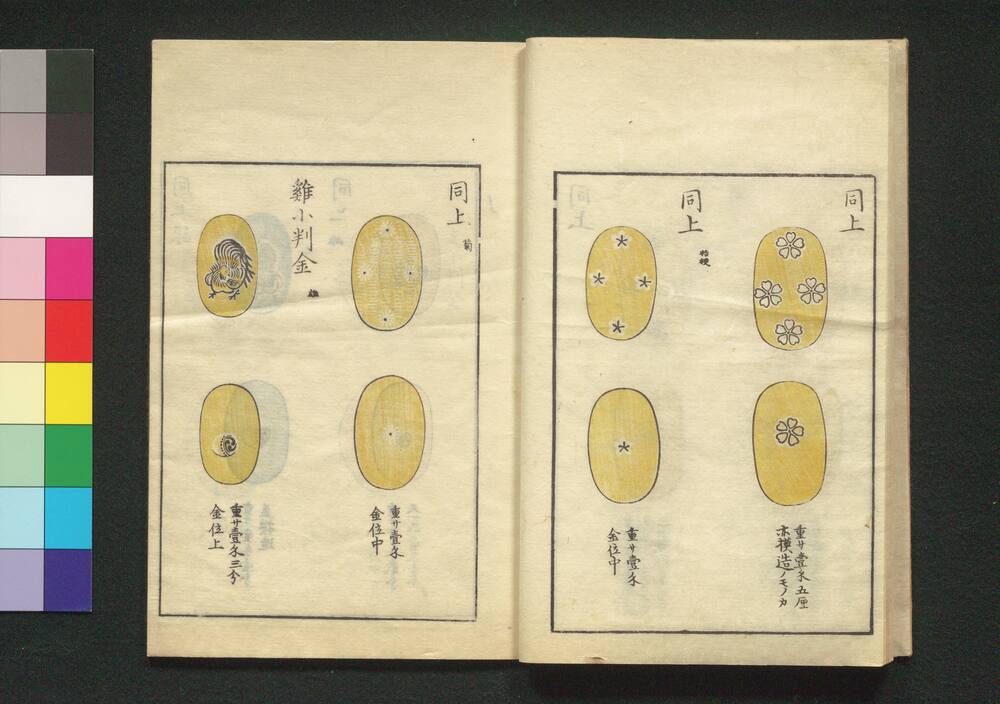 同上
重サ壹匁五厘
亦摸造ノモノカ
同上
桔梗
重サ壹匁
金位中
同上
菊
重サ壹匁
金位中
雞小判金
雄
重サ壹匁三分
金位上